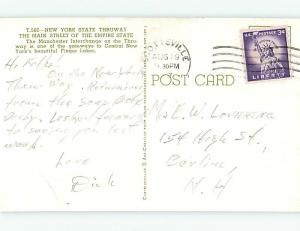 T.580—NEW YORK STATE THRUWAY
THE MAIN STREET OF THE EMPIRE STATE
The Manchester Interchange on the Thru-
way is one of the gateways to Central New
York's beautiful Finger Lakes.
Hi Folks!
On the New York
Thru Way. Returning
from the Soap Box
Derby. Looking forward
to seeing you last
week
Love
Dick
AUG 19
PM
3¢
LIBERTY
POST CARD
Mrs E. W.
154 High St.
Berlin,
N. H